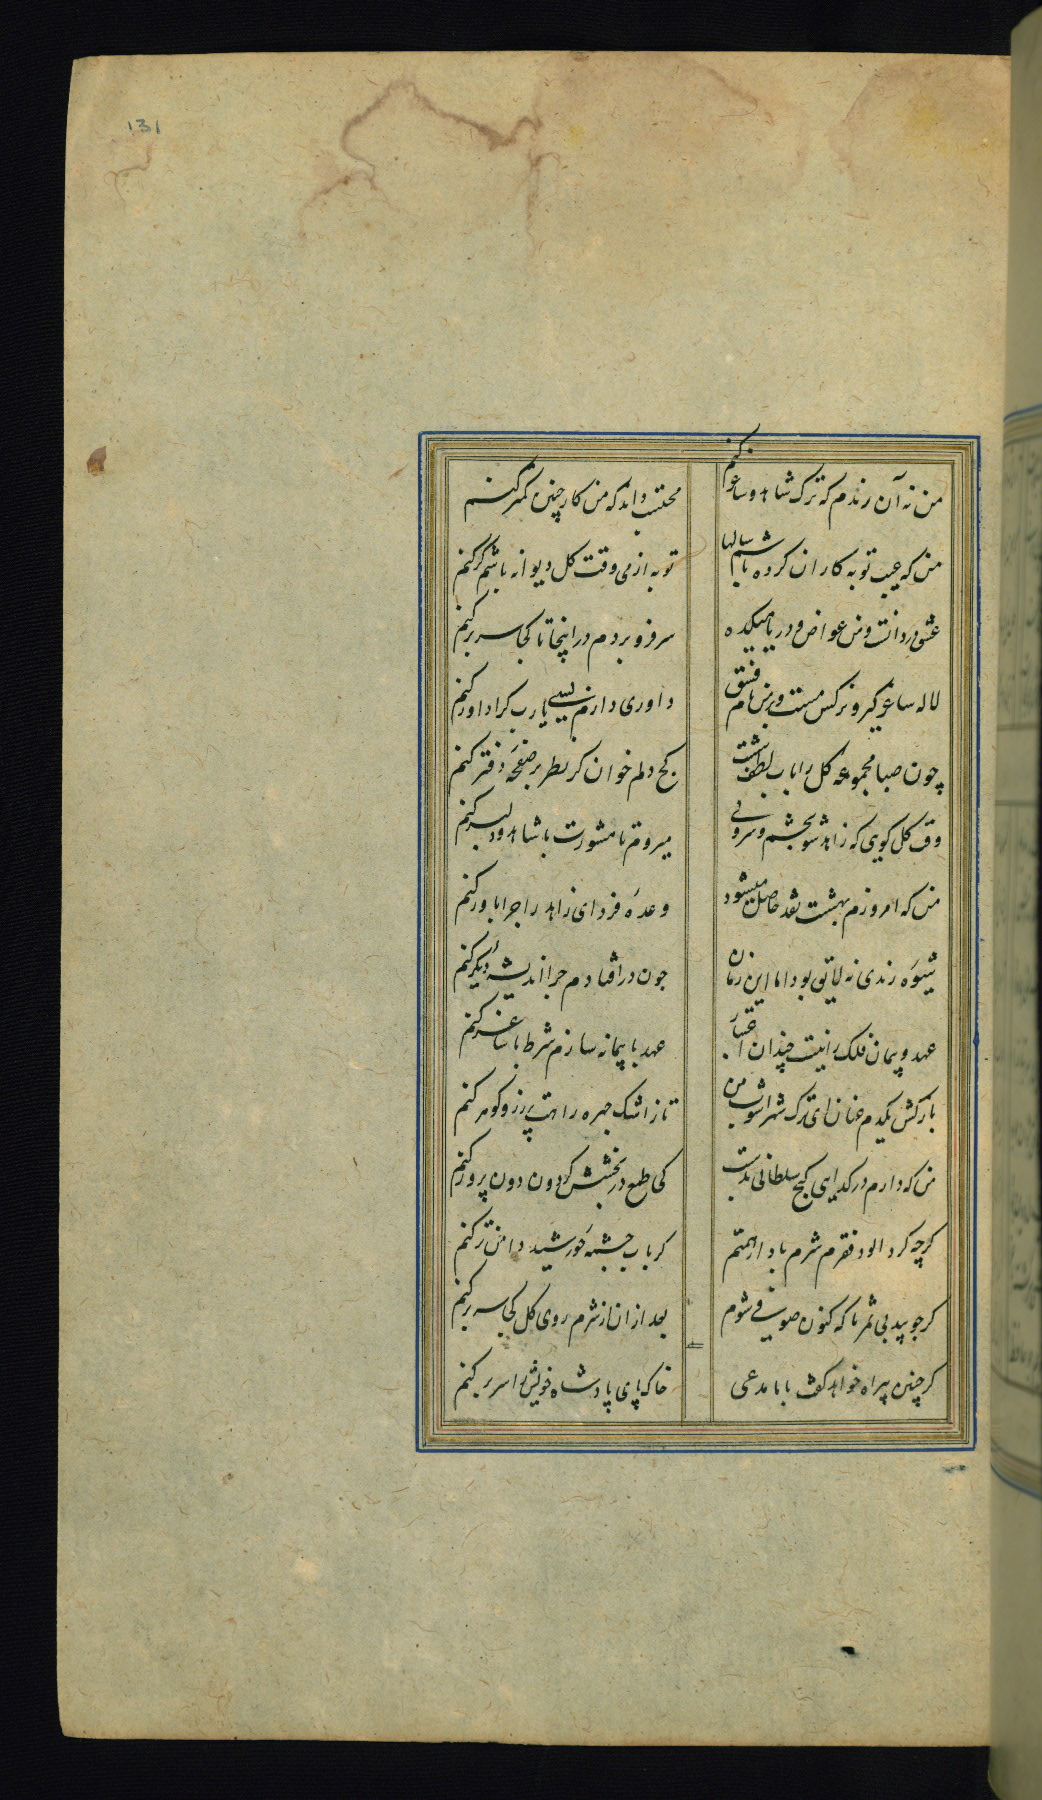 131
من نه آن رندم که ترک شاهد و ساغر کنم
محتسب داند که من کار چنین کمتر کنم
من که عیب توبه کاران کرده باشم سالها
توبه از می وقت کل دیوانه باشم گر کنم
عشق دردانست و من غواص و دریا میکده
سر فرو بردم در اینجا تا کجا سر بر کنم
لاله ساغر کیر و نرکس مست و بر من نام فسق
داوری دارم بسی یا رب کرا داور کنم
چون صبا مجموعه کل را باب لطف شست
کج دلم خوان کر نظر بر صفحه دفتر کنم
وقت کل کویی که زاهد شو بچشم و سر ولی
میروم تا مشورت با شاهد و دلبر کنم
من که امروزم بهشت نقد حاصل میشود
وعده فردای زاهد را چرا باور کنم
شیوه رندی نه لایق بود اما این زمان
چون در افتادم چرا اندیشه دیکر کنم
عهد و پیمان فلک را نیست چندان اعتبار
عهد با پیمانه سازم شرط با ساغر کنم
باز کش یکدم عنان ای ترک شهر اشوب من
تا ز اشک چهره راهت پر زر و کوهر کنم
من که دارم در کدایی کنج سلطانی بدست
کی طمع در بخشش کردون دون پرور کنم
کرچه کرد الود فقرم شرم باد از همتم
کر باب چشمه خورشید دامن تر کنم
کر چو بید بی ثمر با که کنون صوفی شوم
بعد ازان از شرم روی کل کجا سر بر کنم
کر چنین بیراه خواهد کفت با ما مدعی
خاک پای پادشاه خویش را سر بر کنم